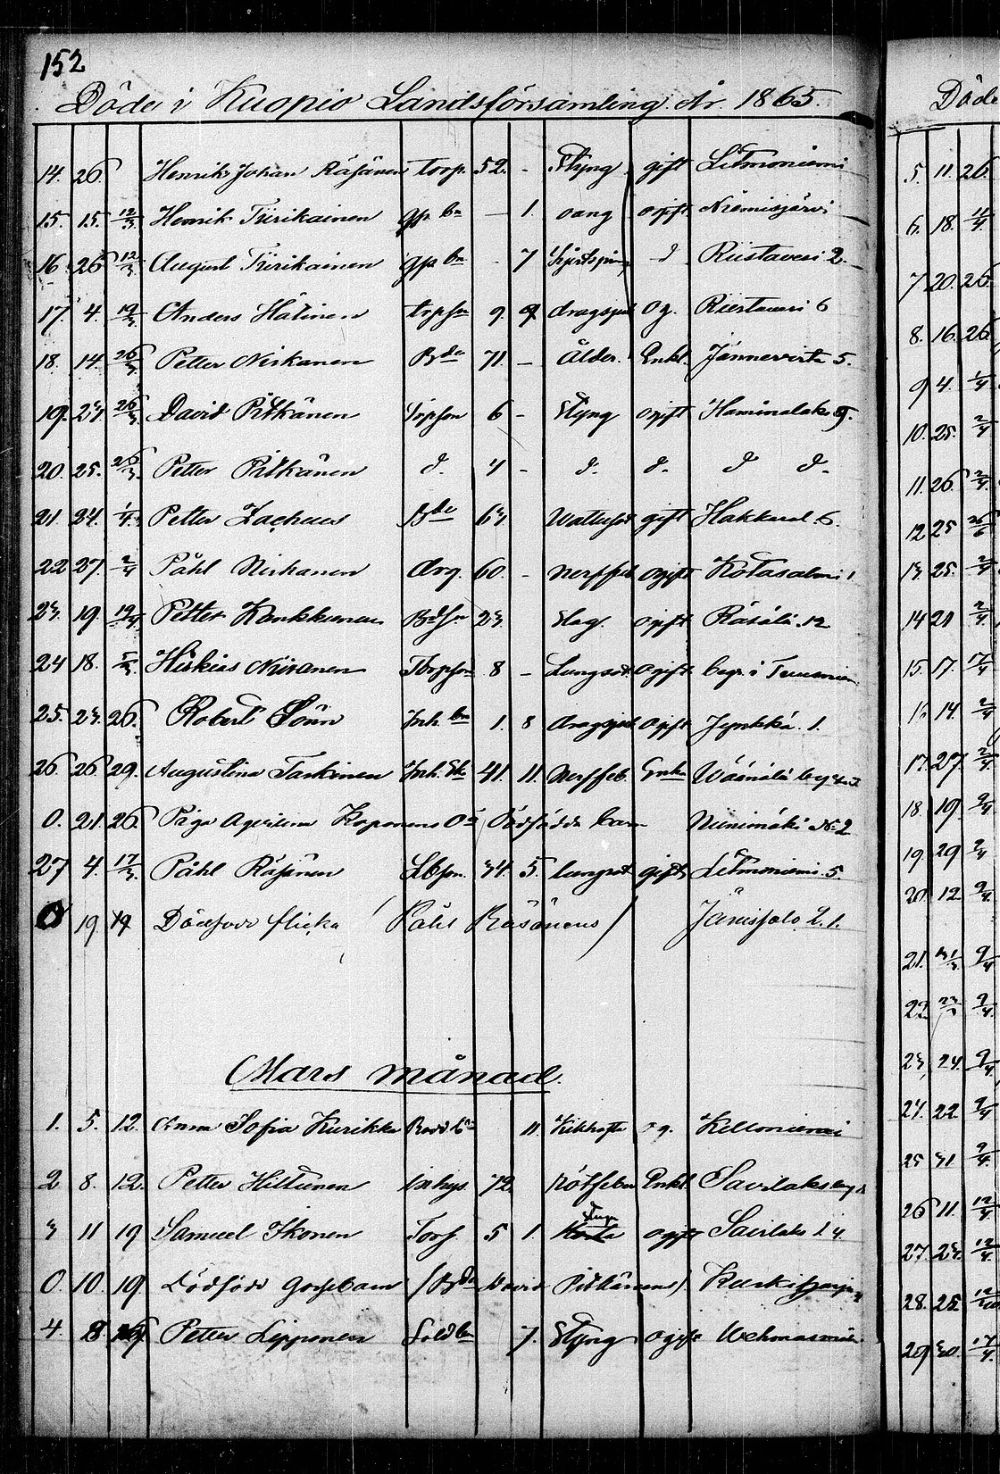 152
Döda i Kuopio Landsförsamling År 1865.
14. 26. Henrik Johan Räsänen torp. 52. - Styng gift Litmoniemi
15. 15. 12/3 Henrik Tiirikainen gp bn - 1. oang ogift Niemisjärvi
16 26 12/3 August Tiirikainen gp bn - 7 d Riistavesi 2.
17 4. 19/3 Anders Hätinen torpson 9. 9 dragsjuk og. Riistavesi 6
18. 14. 26/3 Petter Niskanen Bde 71. - Ålder. Enkl. Jännevirta 5.
19. 27. 26/3 David Pitkänen torpson 6 - Styng ogift Haminalaks 9.
20. 25. 26/3 Petter Pitkänen d. 4 - d. d. d d.
21 24. 1/4 Petter Zacheus Bde 67. Vattusot gift Hakkaral. 6.
22 27. 2/4 Påhl Niskanen Arg. 60. - nerffeb ogift Kotasalmi 1
23. 19. 19/4 Petter Kankkunen Bdsn 23. Slag. ogift Räsälä. 12
24 18. Hiskias Niiranen Torpson 8 - Lungsot ogift begr. i
25. 23. 26. Robert Sönn Inh. bn 1. 8 dragsjuk ogift Jynkkä. 1.
26. 26 29. Augustina Taskinen Inh. Ek 41. 11. Nerffeb. Enka Väänälä
0. 21. 26 Piga Agvilina Koponens Oä Dödfödda barn Niinimäki No 2
27 4. 17/3. Påhl Räsänen Lbson. 34. 5. lungsot gift Litmoniemi. 5.
0 19 19 Dödfödd flicka (Påhl Räsänens) Jänissalo 2. 1.
Mars månad.
1. 5. 12. Anna Sofia Kurikka Bondb 11. Kikhosta og. Kelloniemi
2 8. 12. Petter Hiltunen inhys 72. Rötfeber Enkl. Savilaks
3 11 19 Samuel Ikonen Torp 5 1. ogift Savilaks 1 4
0. 10. 19. Dödfödd gossebarn (Bde David Pitkänens)
4. 8 Petter Lipponen Sold bn 7. Styng ogift Vehmasmäki
Döda
5. 11. 26.
6. 18. 11/4
7 20. 26.
8. 16. 26.
9 4. 1/4
10. 25. 2/4
11. 26. 2/4
12 25 26/6
13. 25. 2/4
14 21 2/4
15. 17. 17/4
16 14. 2/4
17. 27. 2/4
18. 19. 9/4
19. 29 2/4
20. 12 9/4
21. 31/3 9/4
22. 9/4
23. 24. 9/4
24. 22 9/4
25 31 9/4
26 11. 12/4
27. 23. 12/4
28. 25.
29. 30. 17/4